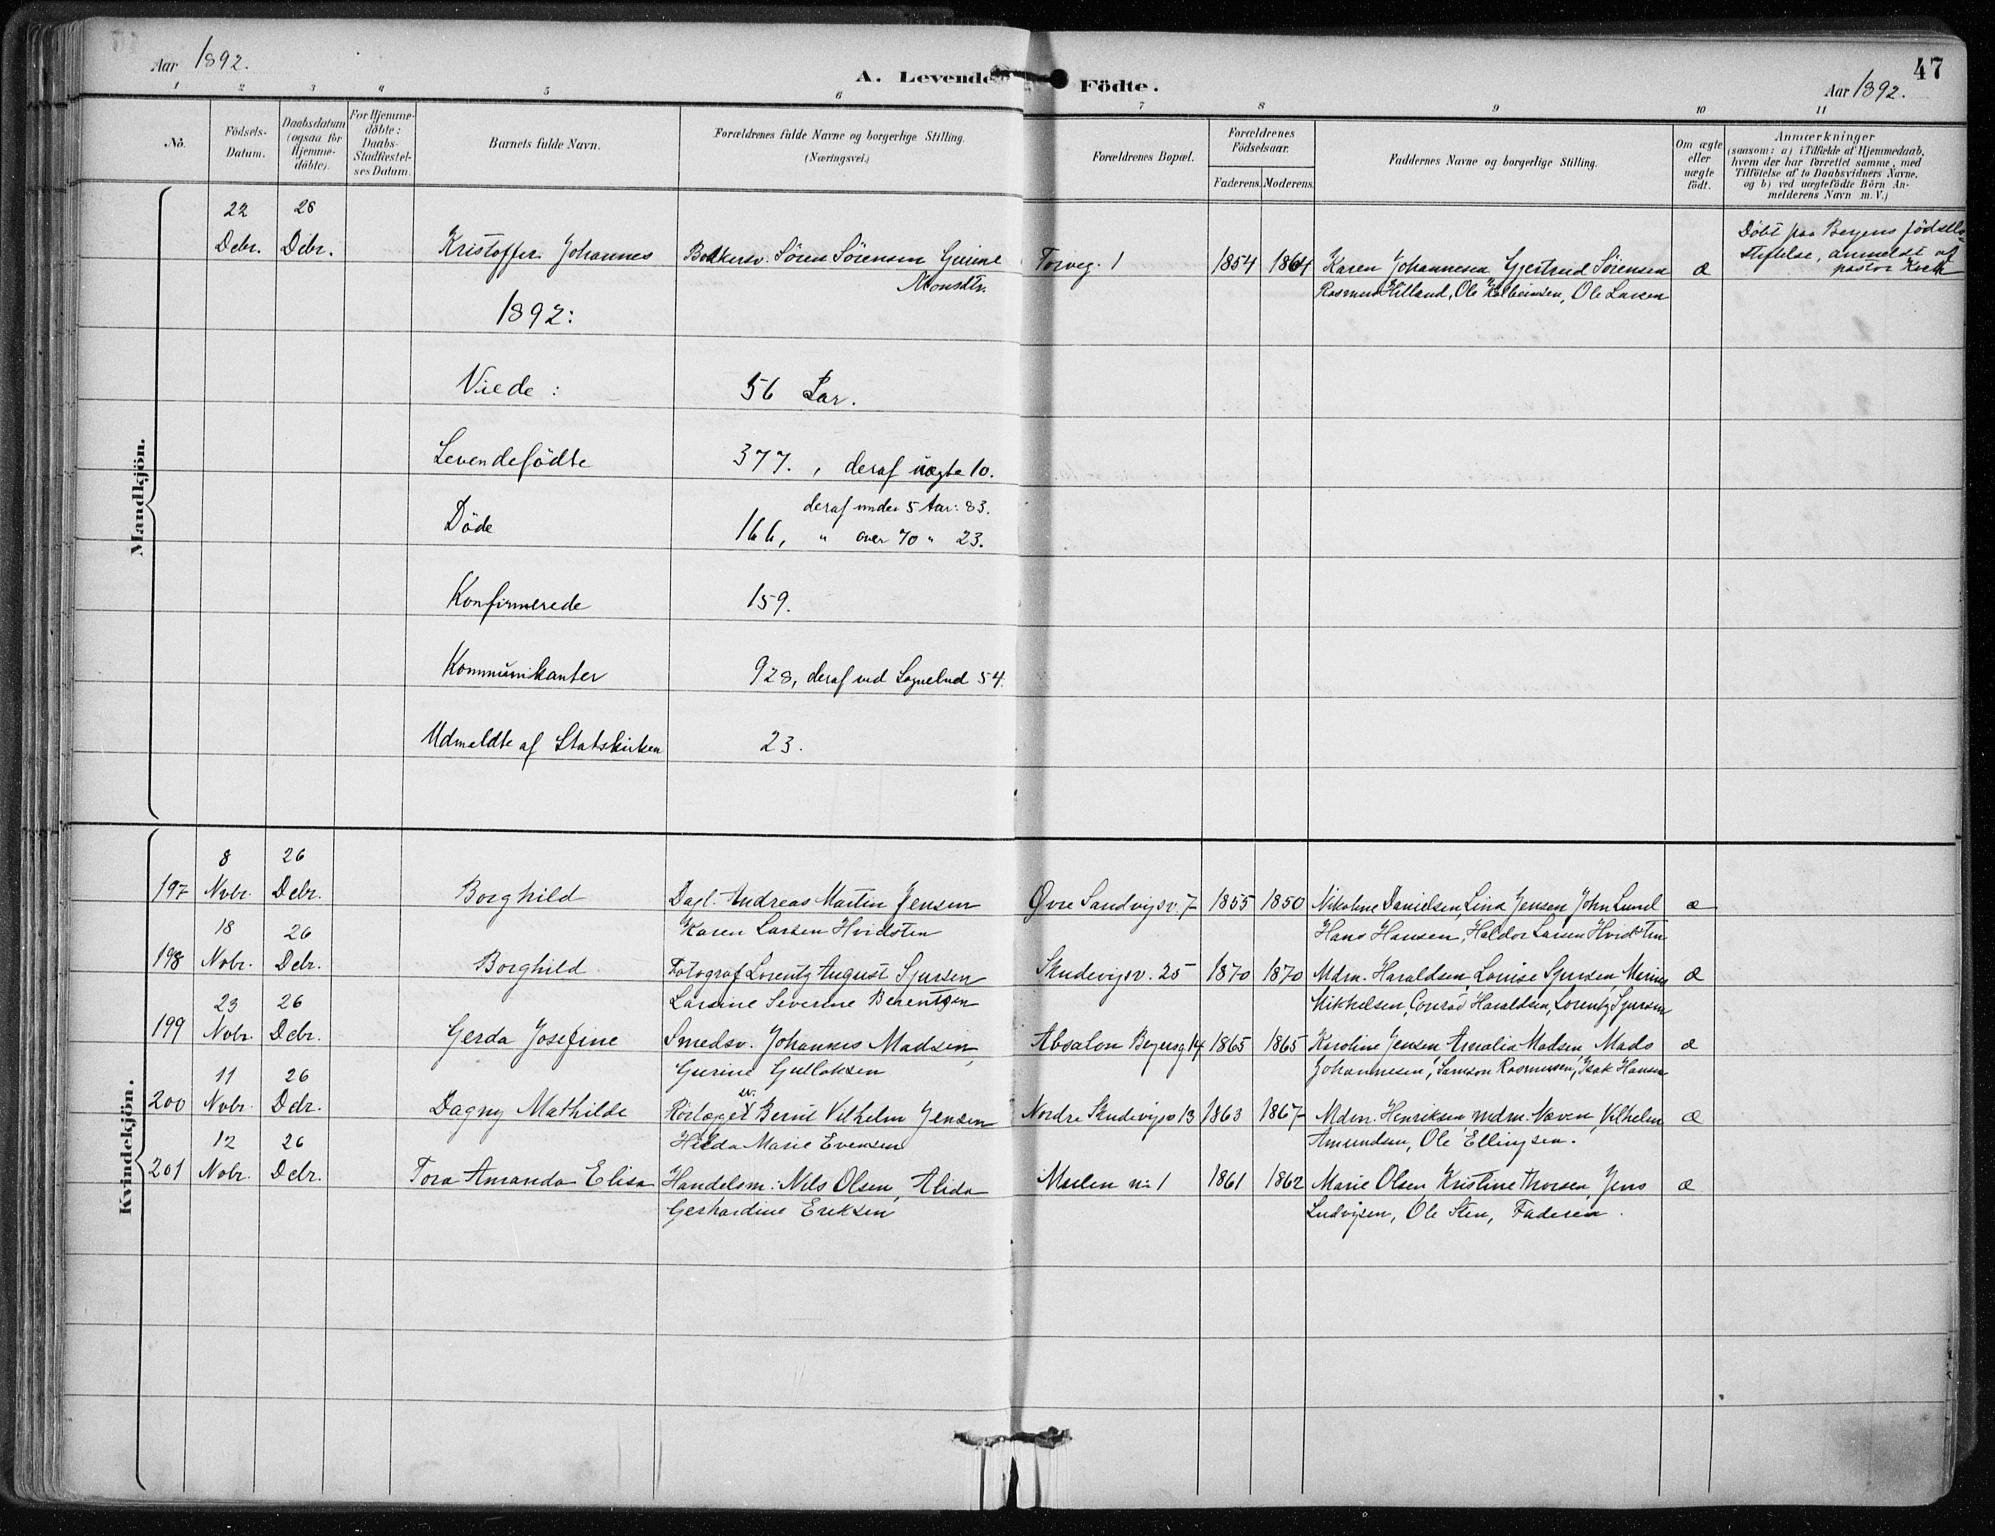 Aar 1892.
A. Levende Födte.
47
Aar 1892.
1 2 3 4 5 6 7 8 9 10 11
No.
Födsels-Datum.
Daabsdatum (ogsaa för Hjemme-döbte).
For Hjemme-döbte: Daabs-Stadfæstel-ses Datum.
Barnets fulde Navn.
Forældrenes fulde Navne og borgerlige Stilling. (Næringsvei.)
Forældrenes Bopæl.
Forældrenes Födselsaar.
Faderens. Moderens.
Faddernes Navne og borgerlige Stilling.
Om ægte eller uægte födt.
Anmærkninger
(saasom: a) i Tilfælde af Hjemmedaab, hvem der har forrettet samme, med Tilföielse af to Daabsvidners Navne, og b) ved uægtefödte Börn An-melderens Navn m. V.)
Mandkjön.
22 28
Debr. Debr. Kristoffer Johannes Bødkersv. Sören Sörensen Gurine
Monsdtr.
Torveg. 1 1854 1864 Karen Johannesen Gjertrud Sörensen æ
Rasmus Hilland, Ole, Ole Larsen
Döbt paa Bergens födsels-
stiftelse, anmeldt af
pastor Koch
1892:
Viede: 56 Par.
Levendefödte 377., deraf uægte 10.
deraf under 5 Aar: 83.
Döde 166, " over 70 " 23.
Konfirmerede 159.
Kommunikanter 928, deraf ved Sognebud 54.
Udmeldte af Statskirken 23.
Kvindekjön.
8 26
197 Novbr. Debr. Borghild Dagl. Andreas Martin Jensen Øvre Sandvigsv. 7 1855 1850 Nikoline Danielsen, Lina Jensen John Lund æ
18 26 Karen Larsen Hvidsten Hans Hansen, Haldor Larsen Hvidsten
198 Nobr. Debr. Borghild Fotograf Lorentz August Sjursen Skudevigsv. 25 1870 1870 Mdm. Haraldsen, Louise Sjursen, Marius æ
23 26 Larsine Severine Berentsen Mikkelsen, Conrad Haraldsen, Lorentz Sjursen
199 Nvbr. Debr. Gerda Josefine Smedsv. Johannes Madsen, Absalon Beyersg 14 1865 1865 Karoline Jensen Amalia Madsen Mads æ
11 26 Gurine Gullaksen Johannesen, Samson Rasmussen, Isak Hansen
200 Nvbr. Debr. Dagny Mathilde Rörlægger sv. Bernt Vilhelm Jensen Nordre Skudevigsv 13 1863 1867 Mdm. Henriksen, mdm. Næven, Vilhelm æ
12 26 Hilda Marie Evensen Amundsen, Ole Ellingsen.
201 Nobr. Debr. Tora Amanda Elisa Handelsm. Nils Olsen, Alida Marken no 1 1861 1862 Marie Olsen Kristine Thorsen, Jens æ
Gerhardine Eriksen Ludvigsen, Ole Sten, Faderen.